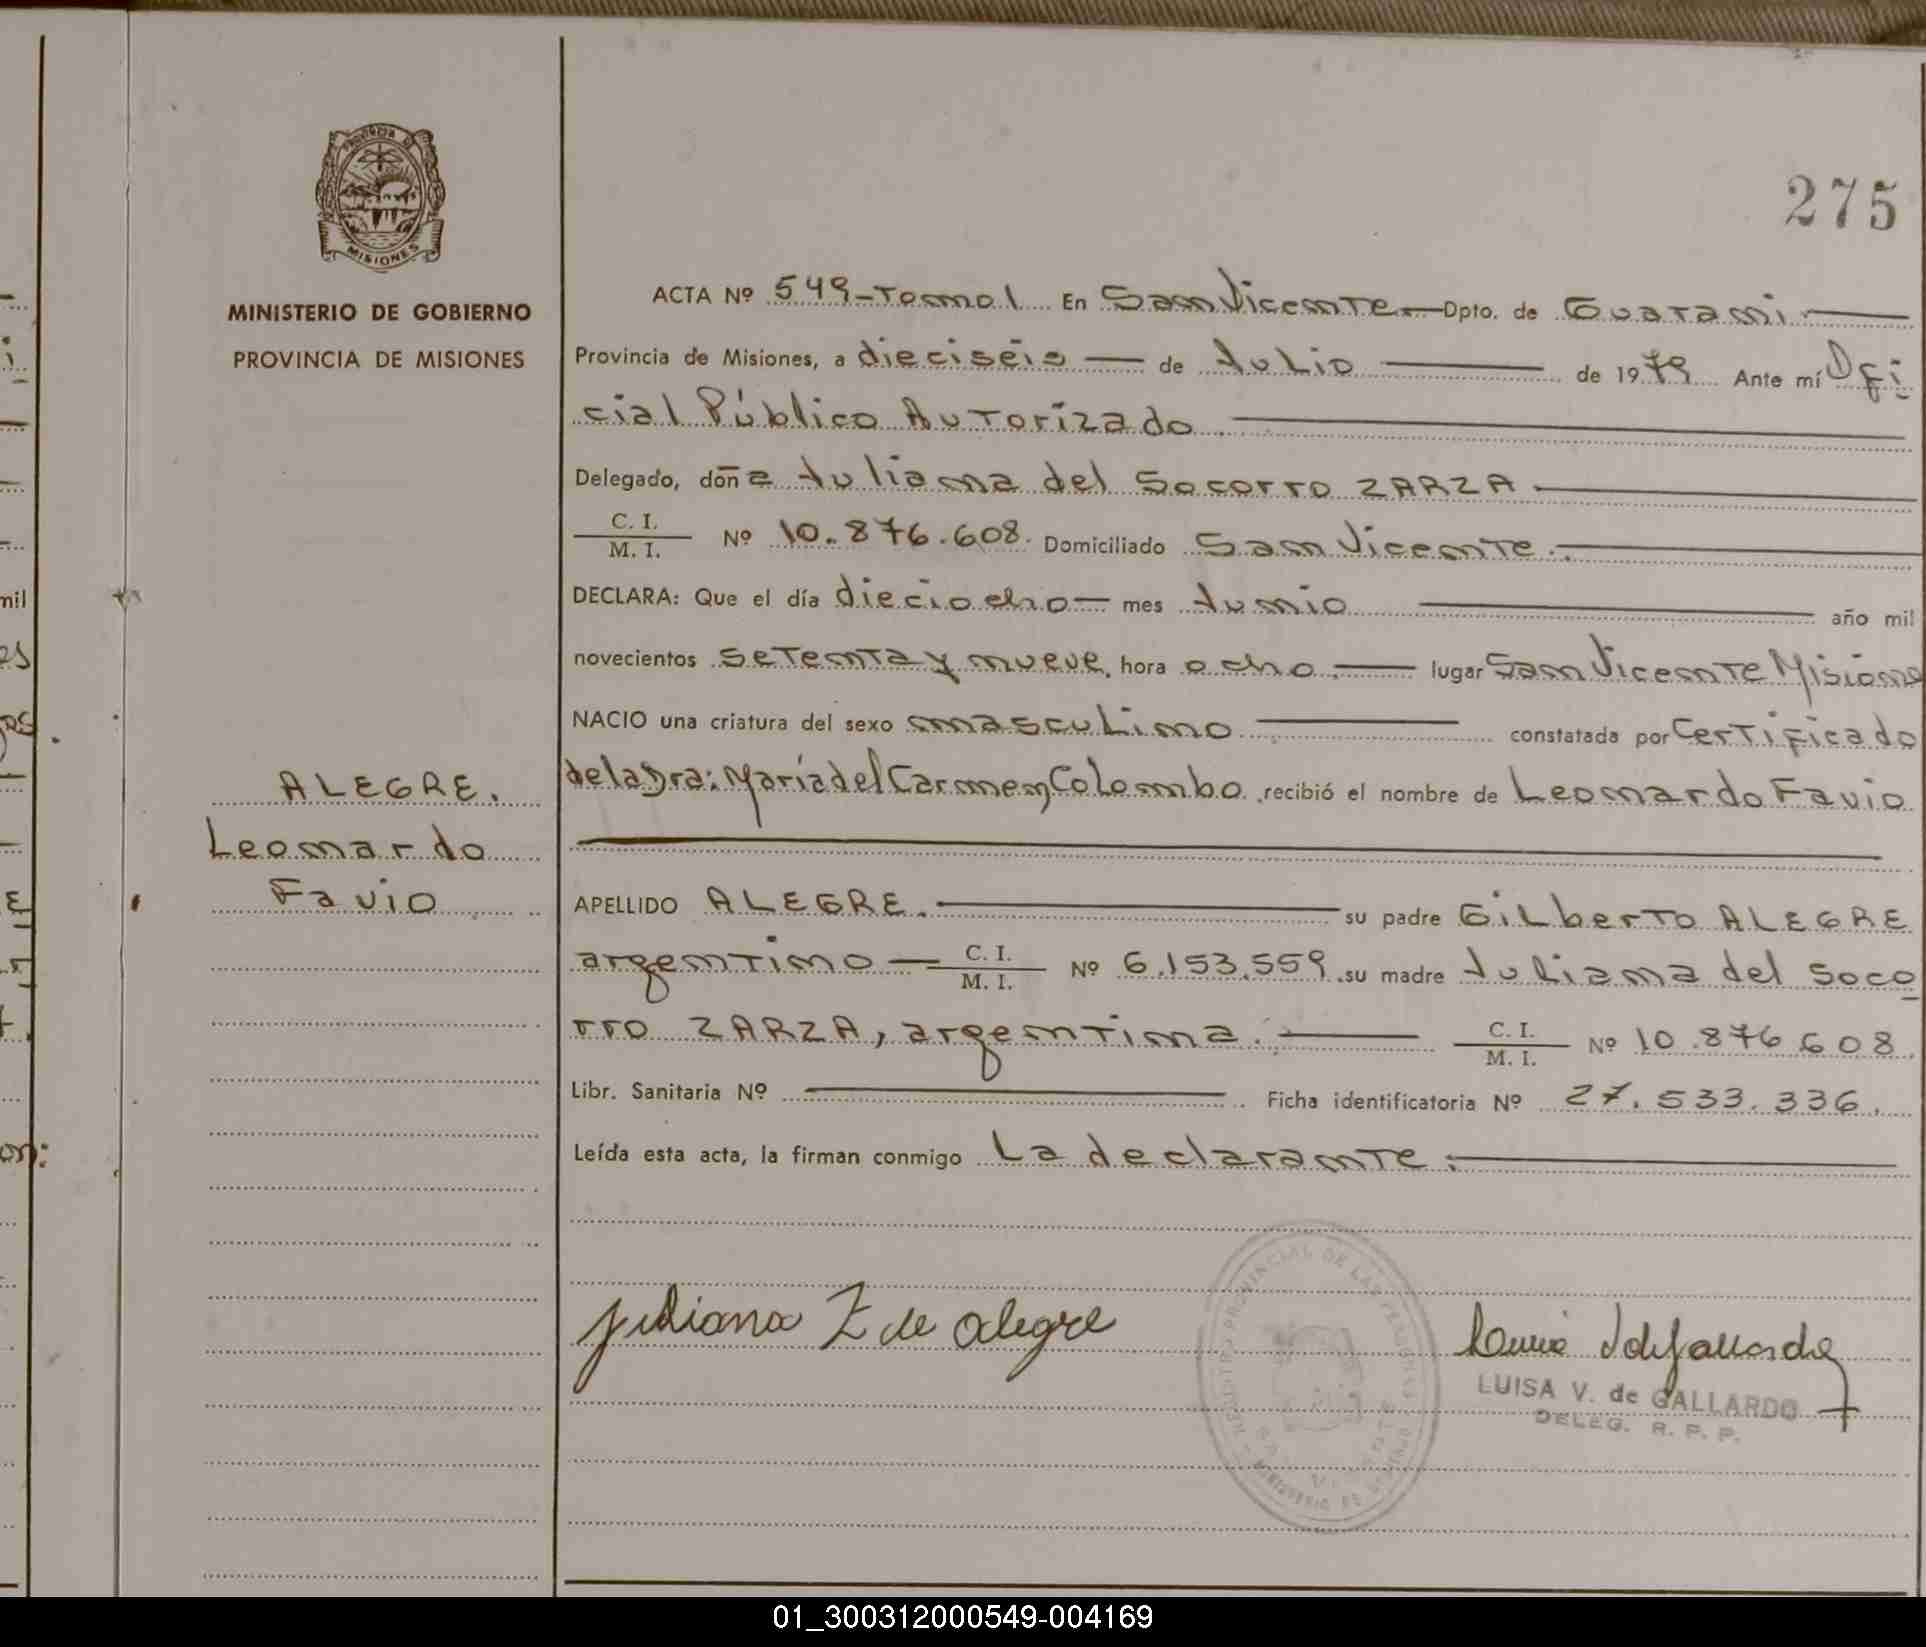 PROVINCIA DE
MISIONES
MINISTERIO DE GOBIERNO
PROVINCIA DE MISIONES
ALEGRE.
Leonardo
Favio
275
ACTA Nº 549-Tomo 1 En San Vicente Dpto. de Guarani
Provincia de Misiones, a dieciséis de Julio de 1979 Ante mí Ofi
cial Público Autorizado
Delegado, doña Juliana del Socorro ZARZA
C. I. / M. I. Nº 10.876.608. Domiciliado San Vicente.
DECLARA: Que el día dieciocho mes Junio año mil
novecientos setenta y nueve, hora ocho. lugar San Vicente Misione
NACIO una criatura del sexo masculino constatada por Certificado
de la Dra: María del Carmen Colombo recibió el nombre de Leonardo Favio
APELLIDO ALEGRE. su padre Gilberto ALEGRE
argentino C. I. / M. I. Nº 6.153.559 su madre Juliana del Soco
rro ZARZA, argentina. C. I. / M. I. Nº 10.876.608
Libr. Sanitaria Nº Ficha identificatoria Nº 27.533.336.
Leída esta acta, la firman conmigo La declarante.
Juliana Z de Alegre
LUISA V. de GALLARDO
DELEG. R. P. P.
REGISTRO PROVINCIAL DE LAS PERSONAS
MINISTERIO DE GOBIERNO
mil
es
on:
01_300312000549-004169